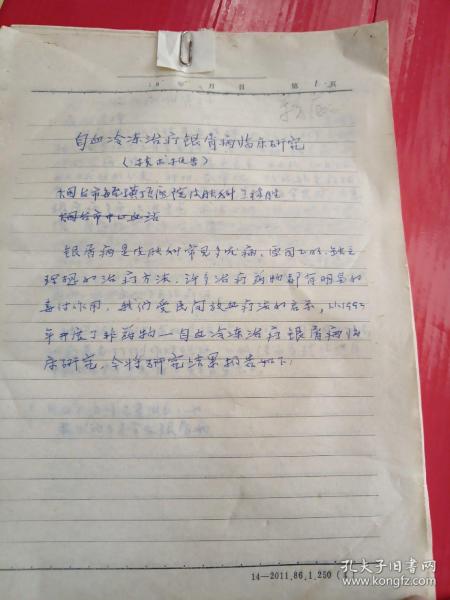 19 年 月 日 第 1 页
自血冷冻治疗银屑病临床研究
(技术报告)
烟台市毓璜顶医院皮肤科
烟台市中心血站
银屑病是皮肤科常见多忧病,原因不明,缺乏
理想的治疗方法,许多治疗药物都有明显的
毒付作用,我们受民间放血疗法的启示,从1995
年开展了非药物一自血冷冻治疗银屑病临
床研究,今将研究结果报告如下:
14—2011.86.1.250(
孔夫子旧书网
kongfz.com